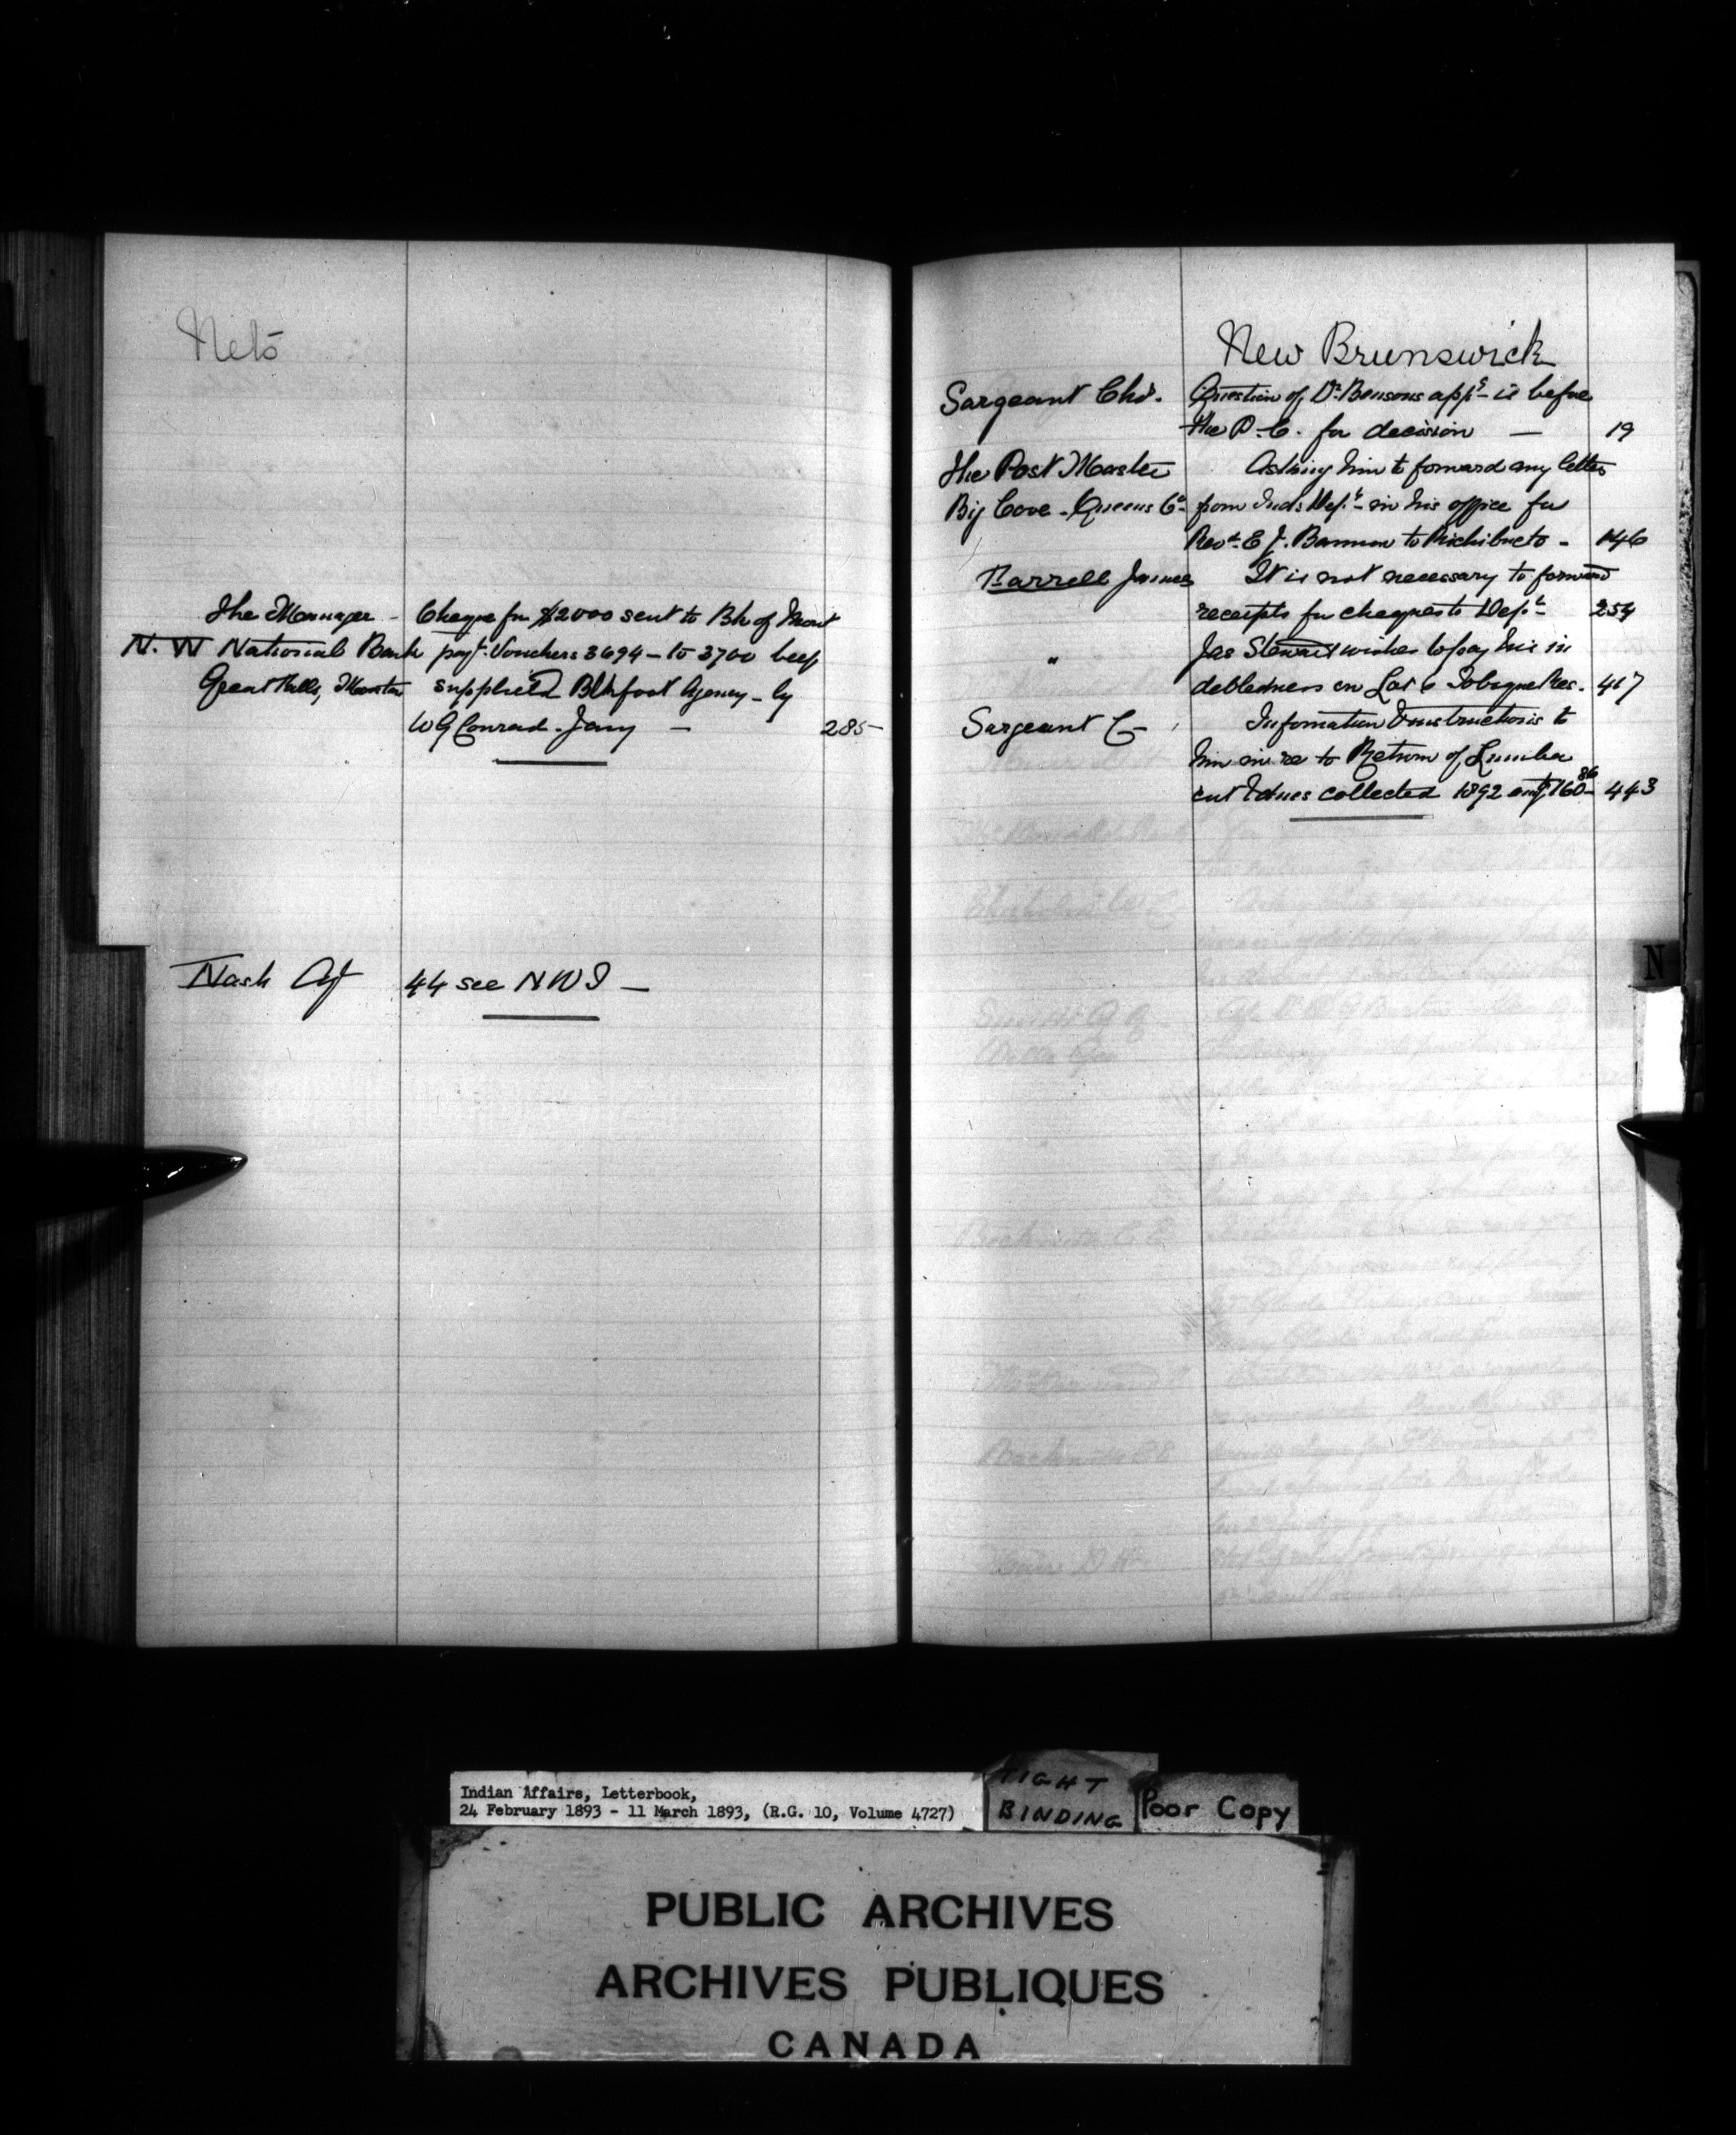 The Manager - Cheque for $2000 sent to Bk of Mont
N. W National Bank payt. Vouchers 3694 - to 3700 beef
Great Falls, Montana supplied Blkfoot Agency - by
W G Conrad - Jany - 285 -
Nash 44 see N W T -
New Brunswick
Sargeant Chs. Question of Dr. Bensons appt is before
the P.C. for decision - 19
The Post Master Asking him to forward any letter
Big Cove - Queens Co. from Inds Dept. in his office for
Revd. E J. Bannon to Richibucto - 146
Farrell James It is not necessary to forward
receipts for cheques to Dept 254
" Jas Stewart wishes to pay his in
debtedness on Lot 6 Tobique Res. 417
Sargeant C - Information & instructions to
him in re to Return of Lumber
cut & dues collected 1892 160 86 - 443
N
Indian Affairs, Letterbook,
24 February 1893 - 11 March 1893, (R.G. 10, Volume 4727)
TIGHT
BINDING
Poor Copy
PUBLIC ARCHIVES
ARCHIVES PUBLIQUES
CANADA